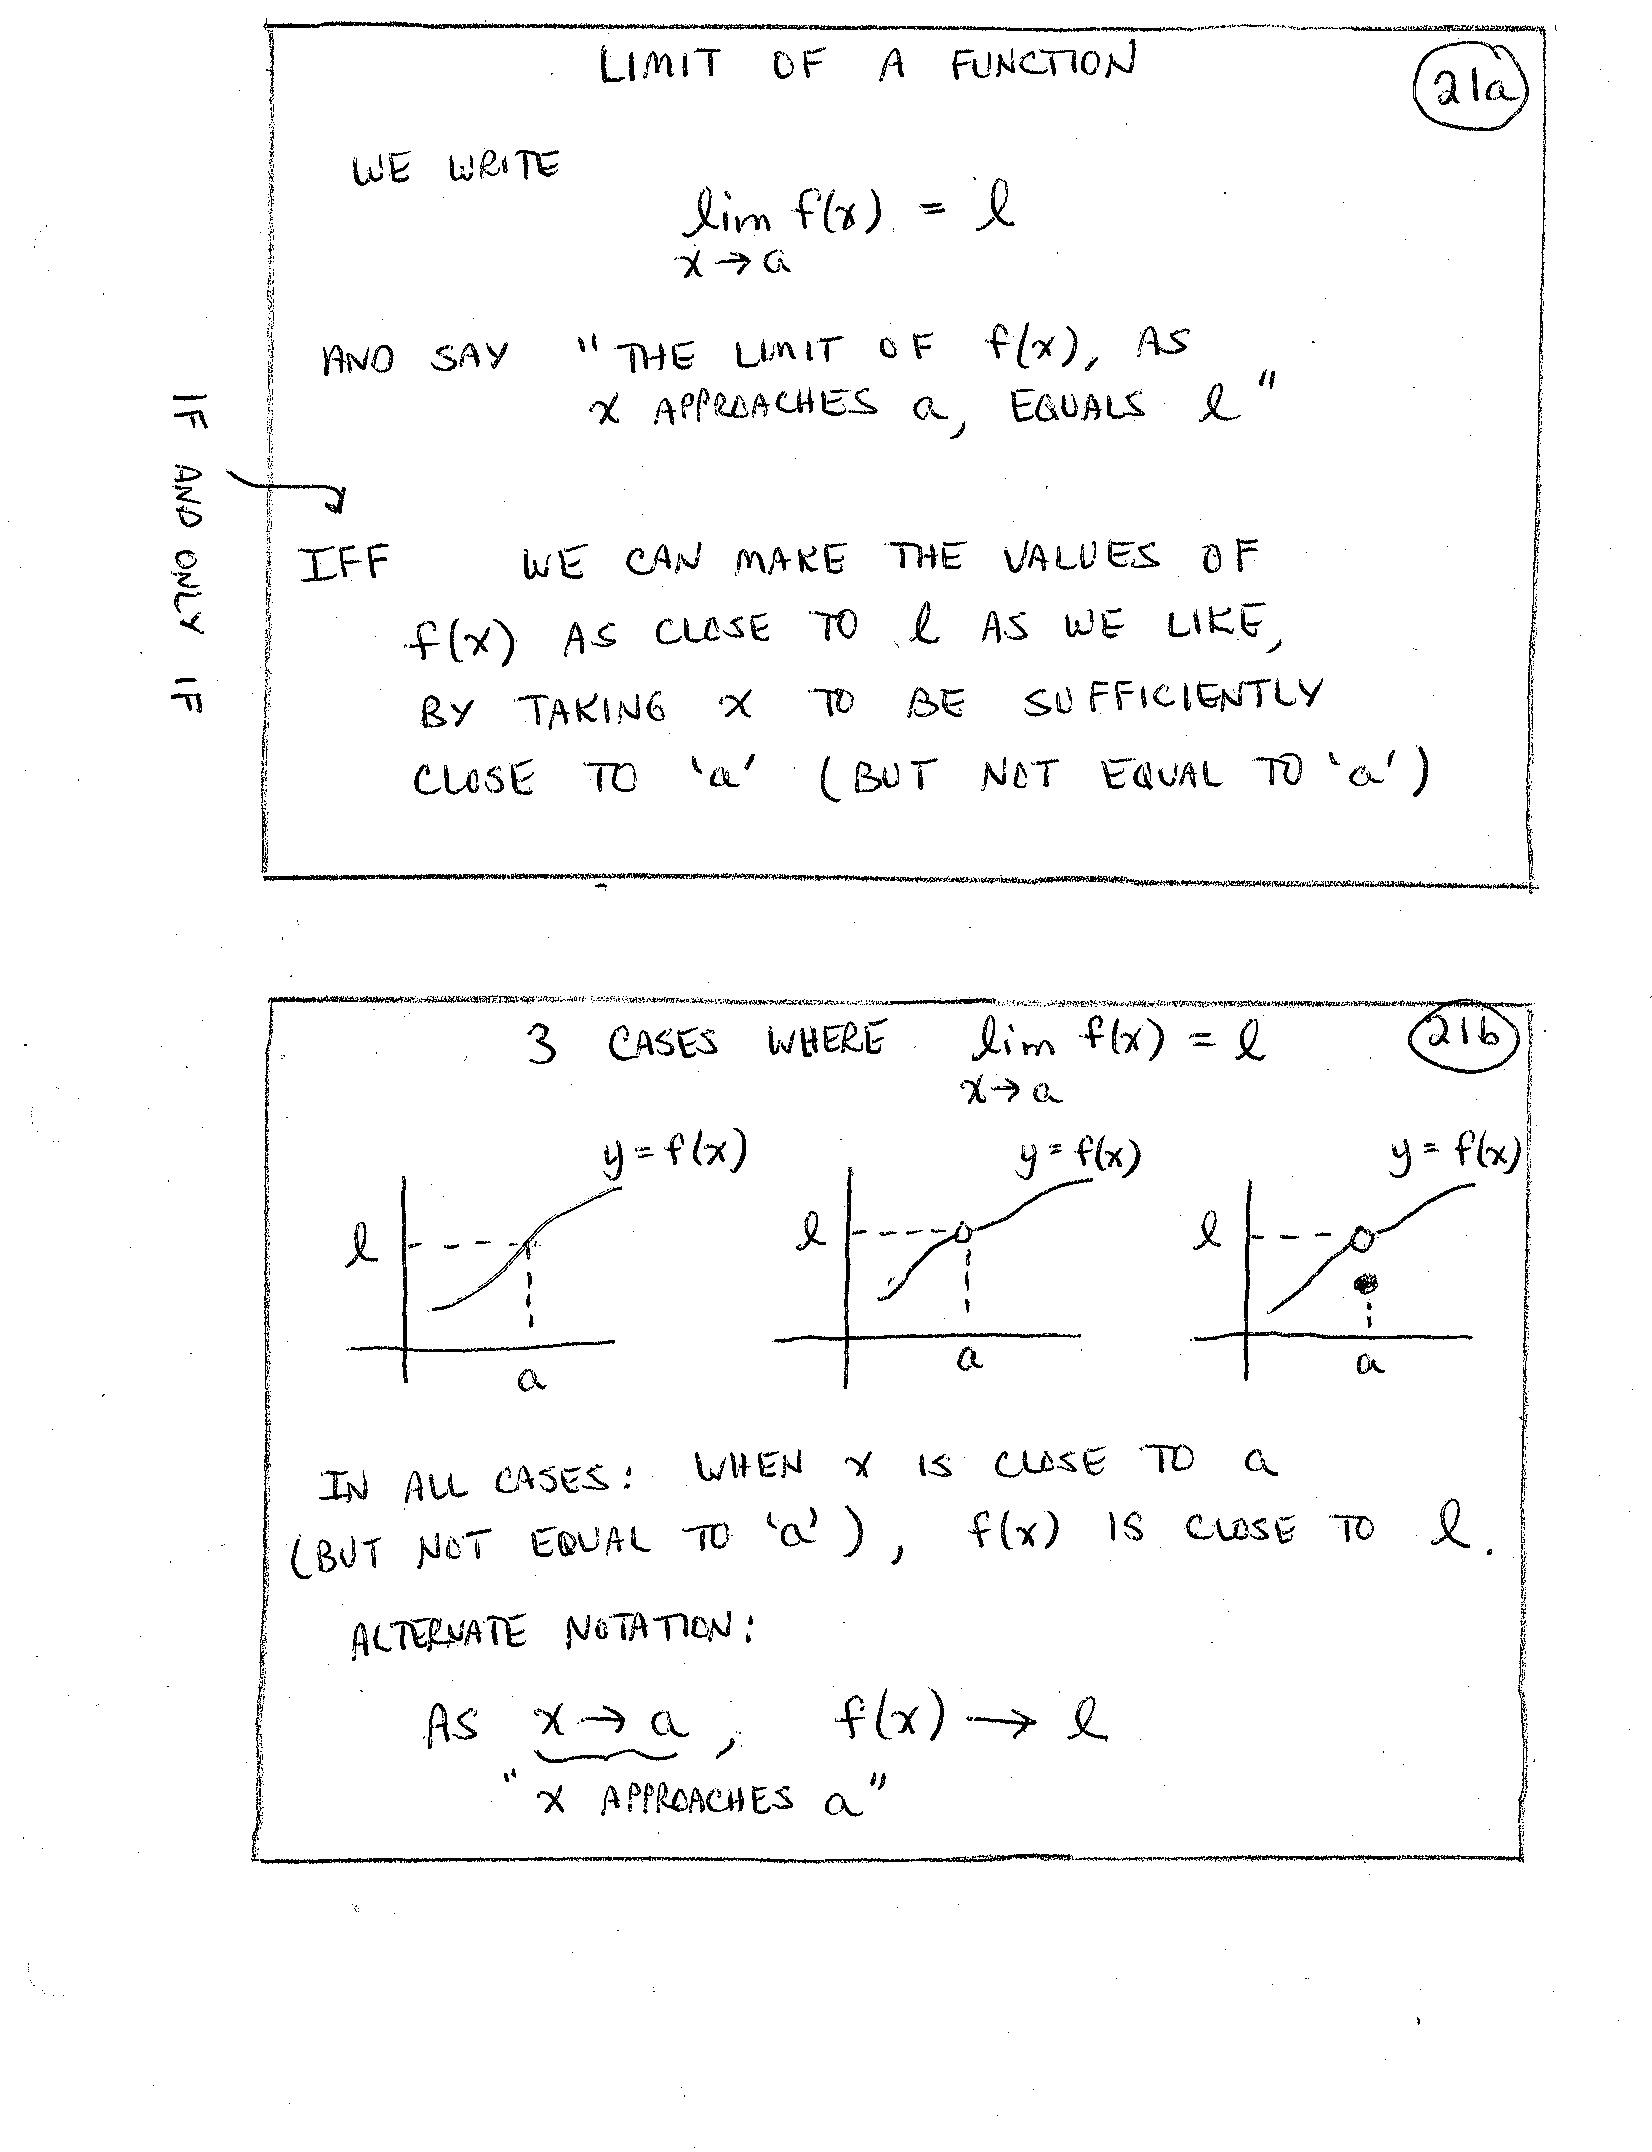 LIMIT OF A FUNCTION
21a
WE WRITE
lim f(x) = l
x→a
AND SAY "THE LIMIT OF f(x), AS
x APPROACHES a, EQUALS l"
IF AND ONLY IF
IFF WE CAN MAKE THE VALUES OF
f(x) AS CLOSE TO l AS WE LIKE,
BY TAKING x TO BE SUFFICIENTLY
CLOSE TO 'a' (BUT NOT EQUAL TO 'a')
3 CASES WHERE lim f(x) = l
x→a
21b
y=f(x)
l
a
y=f(x)
l
a
y=f(x)
l
a
IN ALL CASES: WHEN x IS CLOSE TO a
(BUT NOT EQUAL TO 'a'), f(x) IS CLOSE TO l.
ALTERNATE NOTATION:
AS x→a, f(x)→l
"x APPROACHES a"